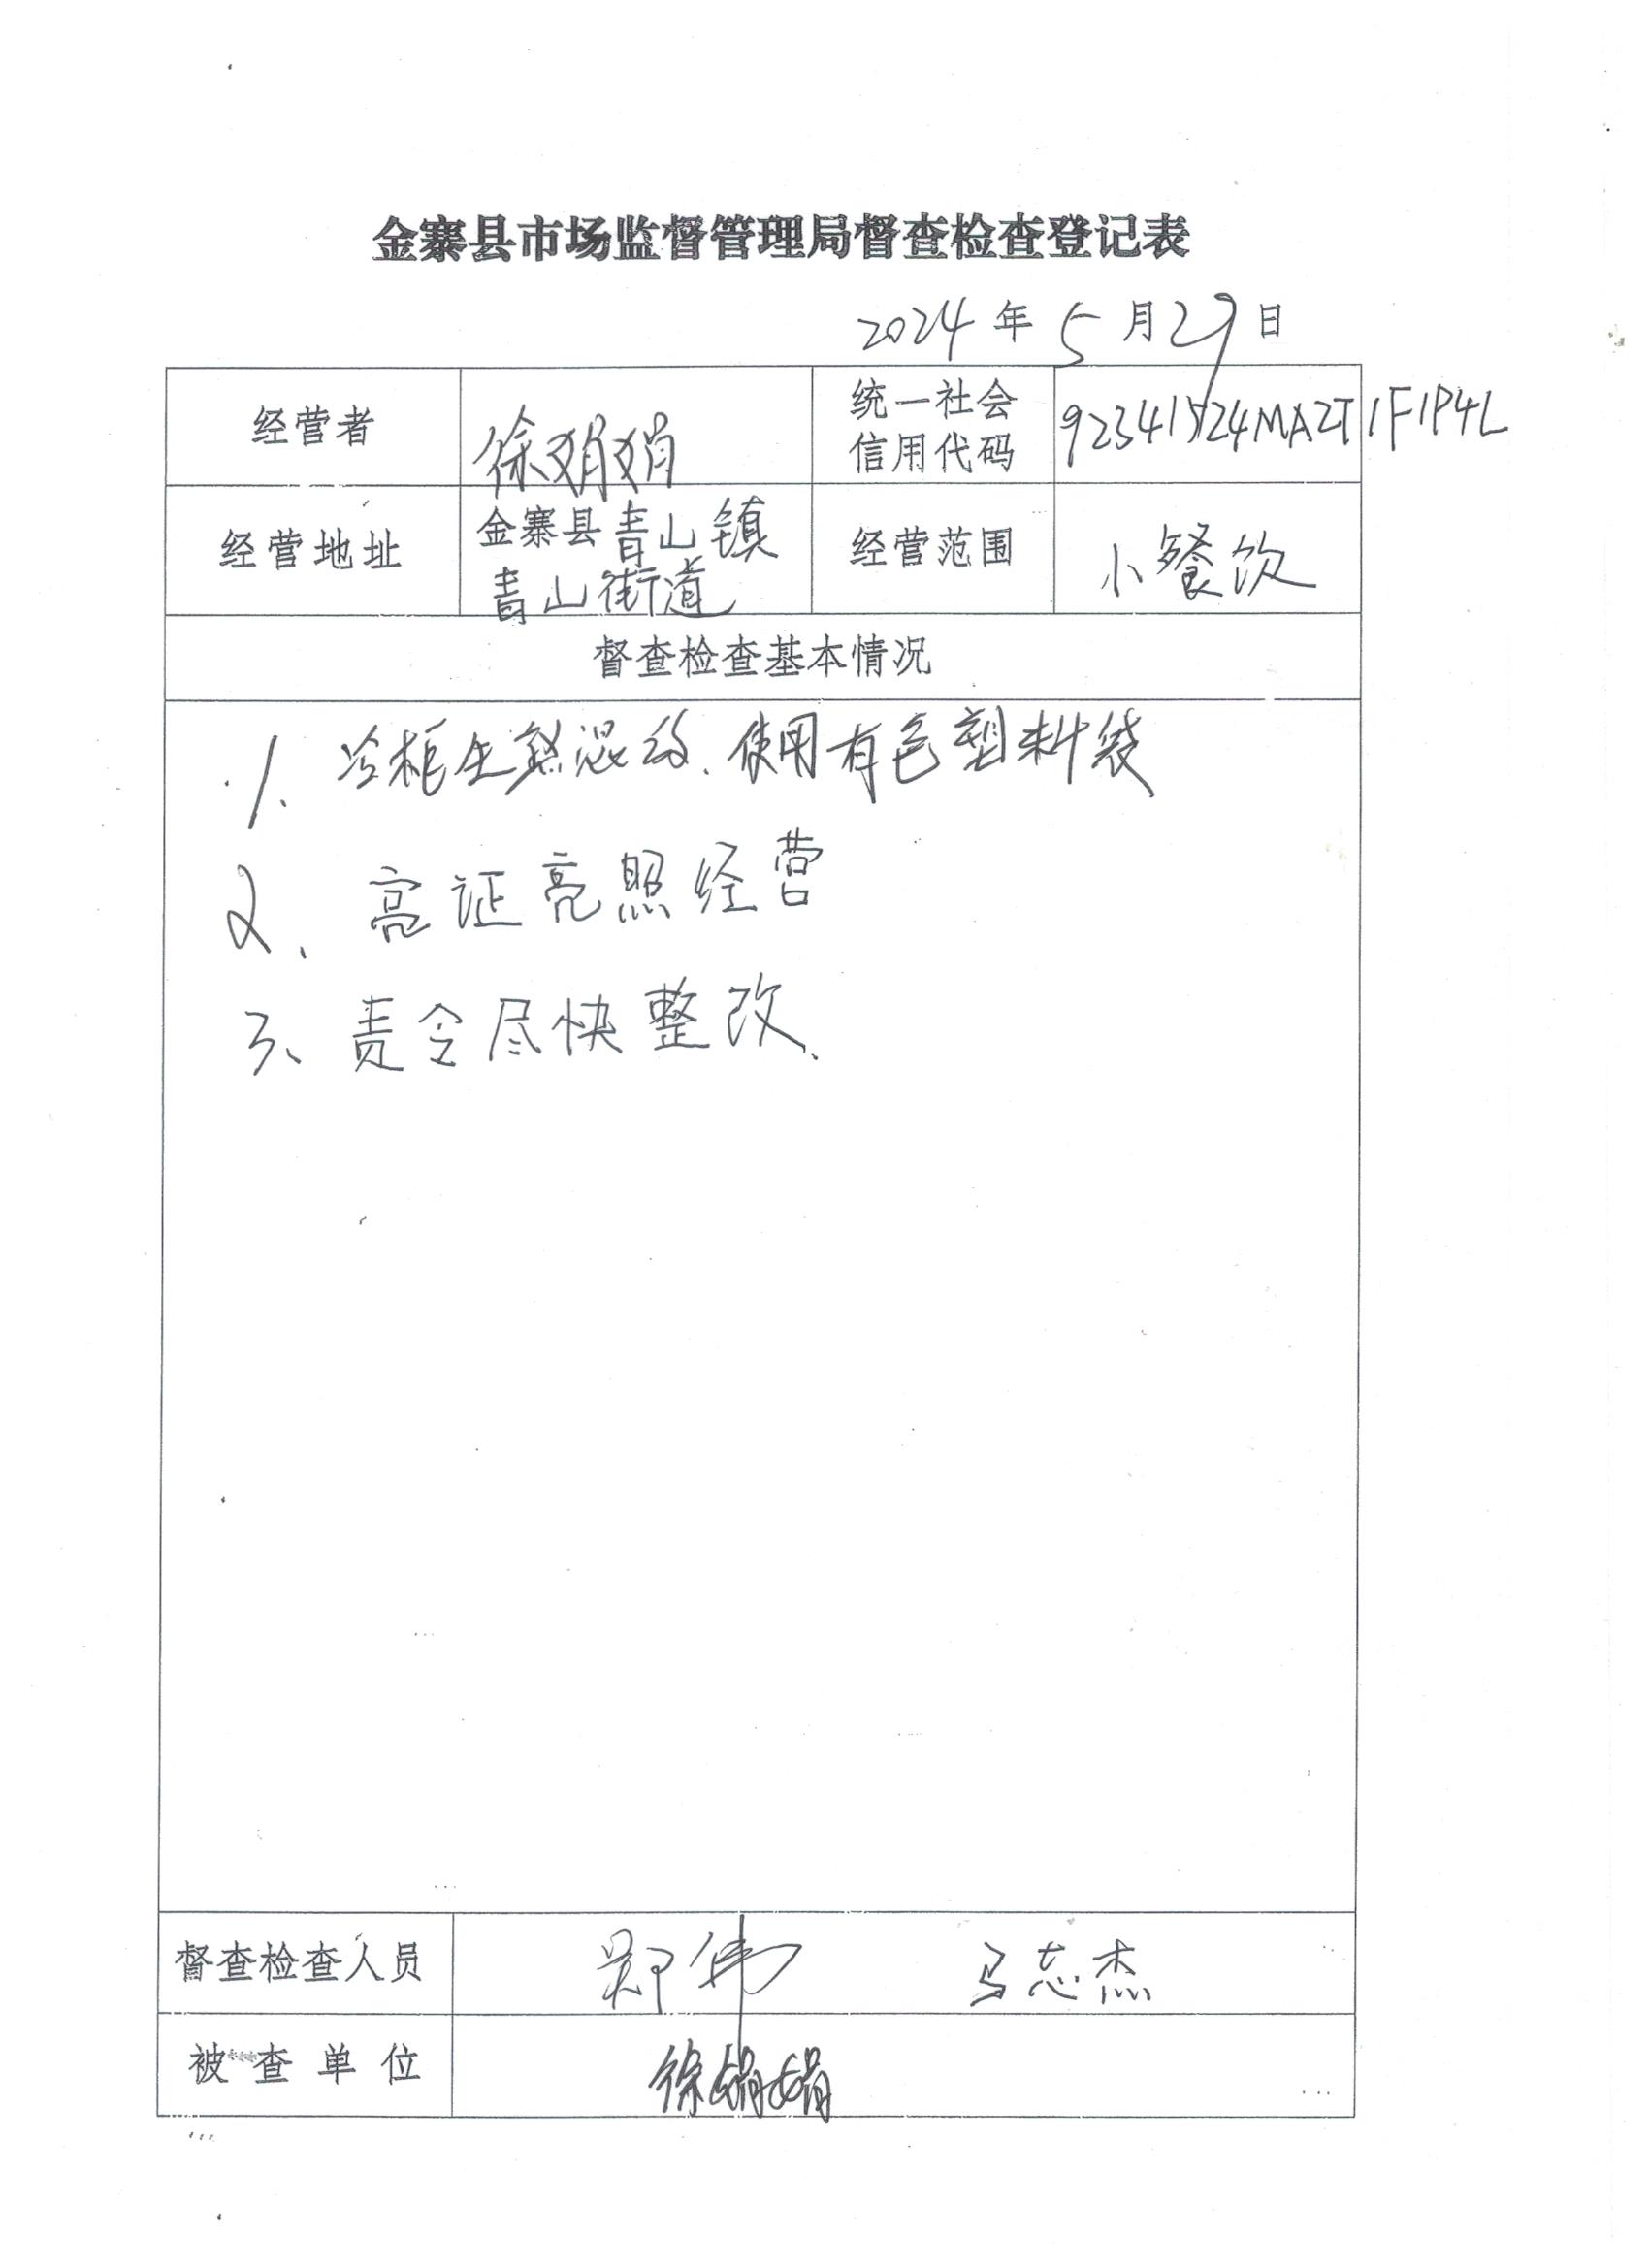 金寨县市场监督管理局督查检查登记表
2024年5月29日
经营者 徐娟娟 统一社会信用代码 92341524MA2T1F1P4L
经营地址 金寨县青山镇青山街道 经营范围 小餐饮
督查检查基本情况
1、冷柜生熟混放、使用有色塑料袋
2、亮证亮照经营
3、责令尽快整改、
督查检查人员 郑伟 马志杰
被查单位 徐娟娟